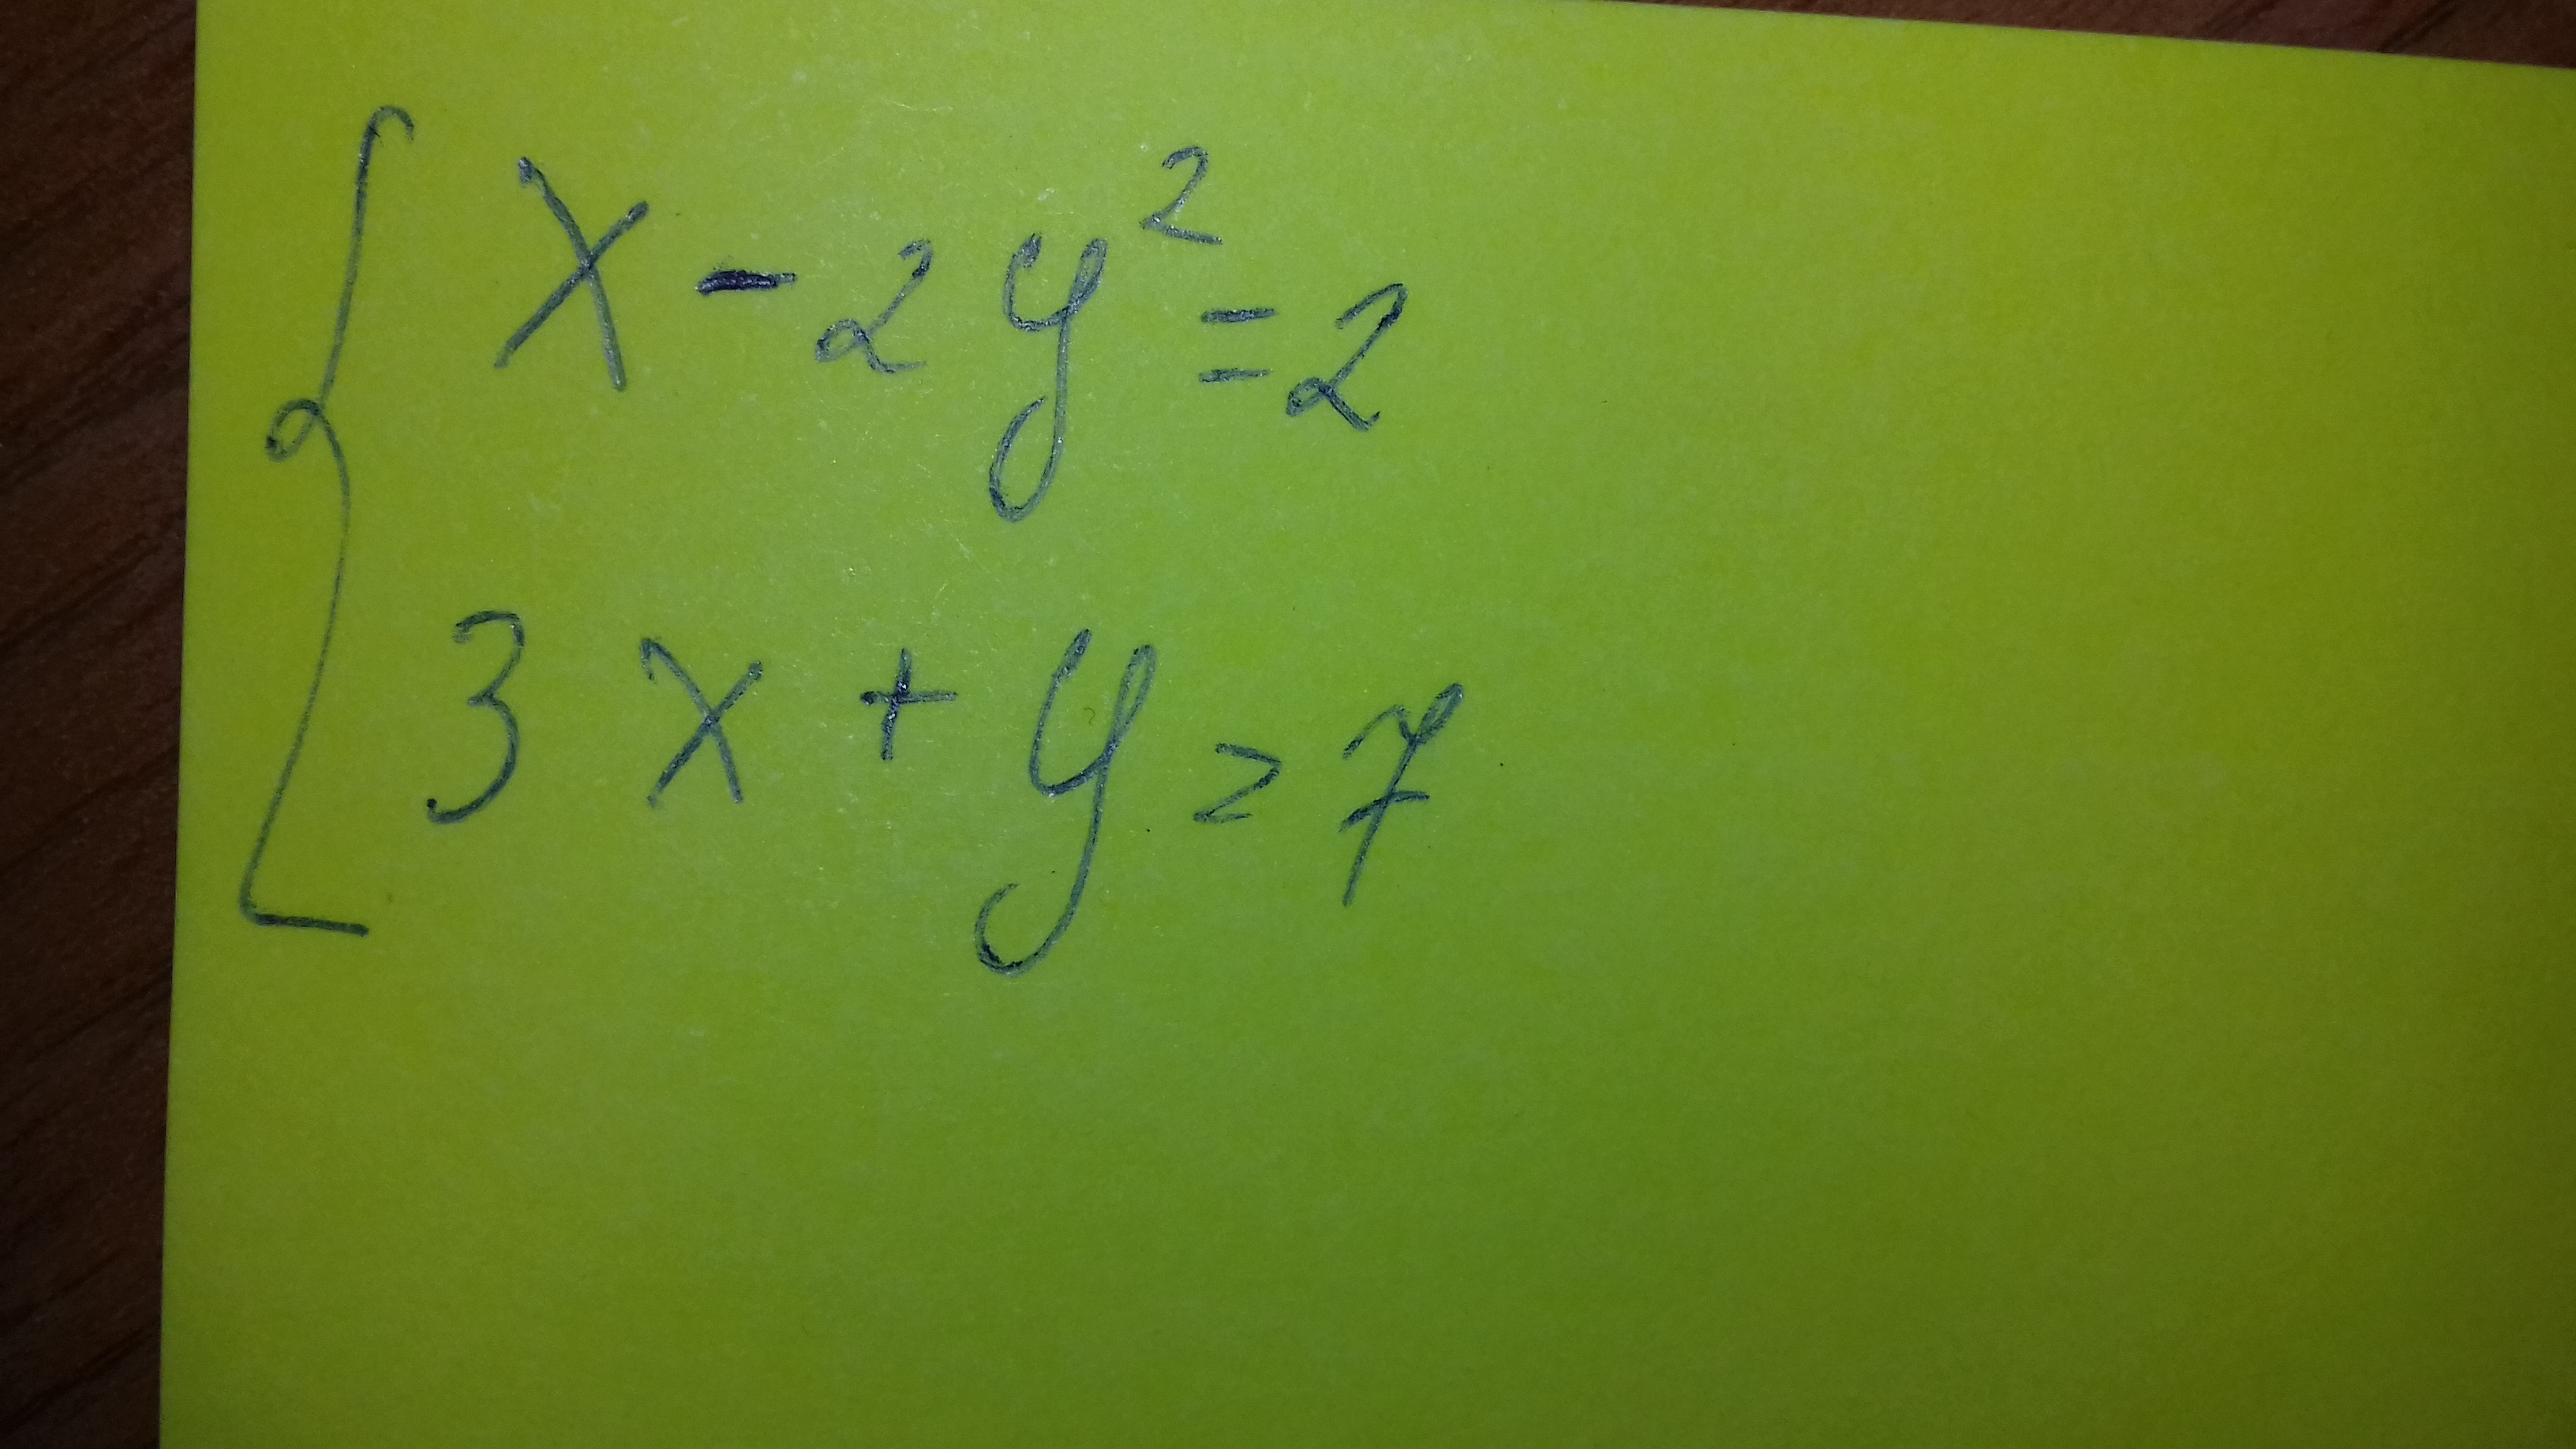 x - 2y² = 2
3x + y = 7